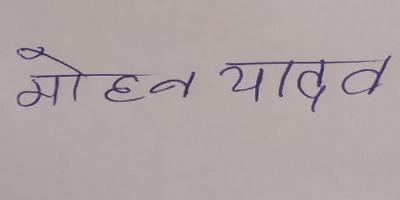 मोहन यादव